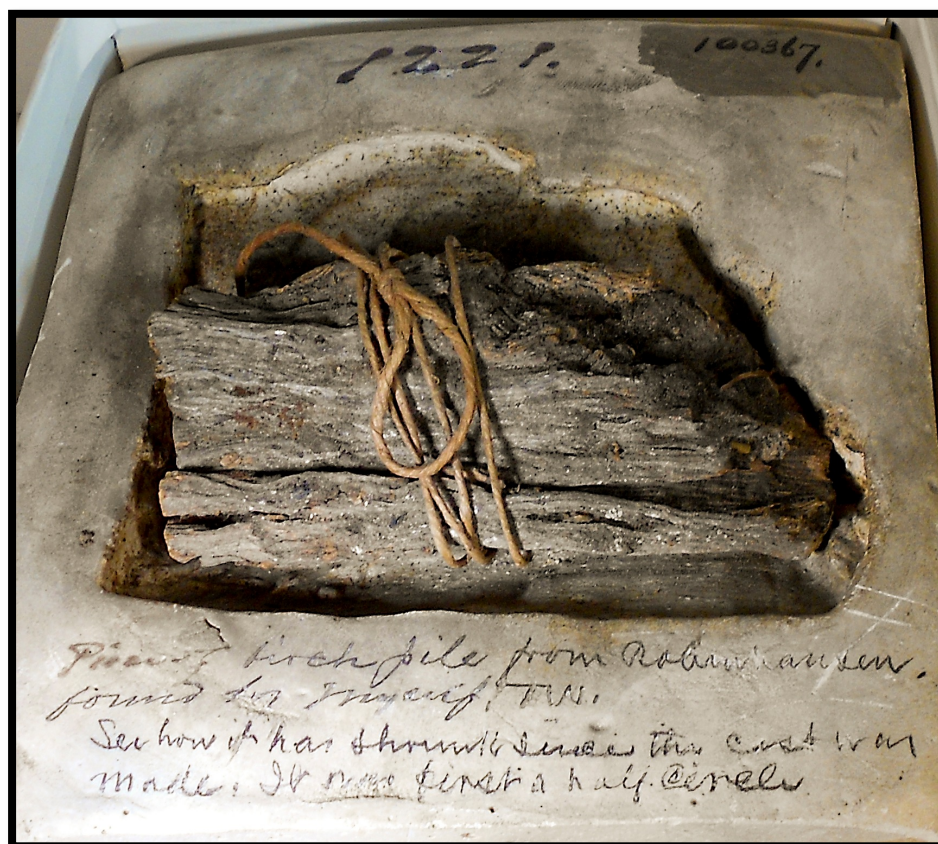 8228.
100367.
Piece of birch pile from Robenhausen.
found by myself, TW.
See how it has shrunk since the cast was
made. It was first a half circle